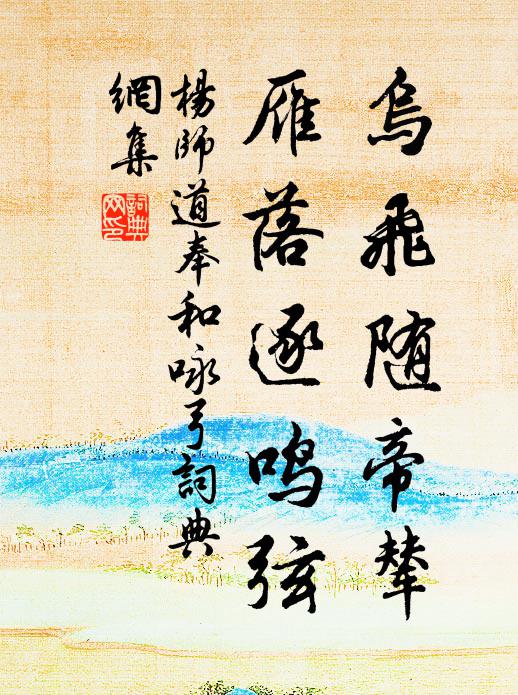 烏飛随帝輦
雁落逐鳴弦
楊師道奉和咏弓詞典
網集
詞典
网印